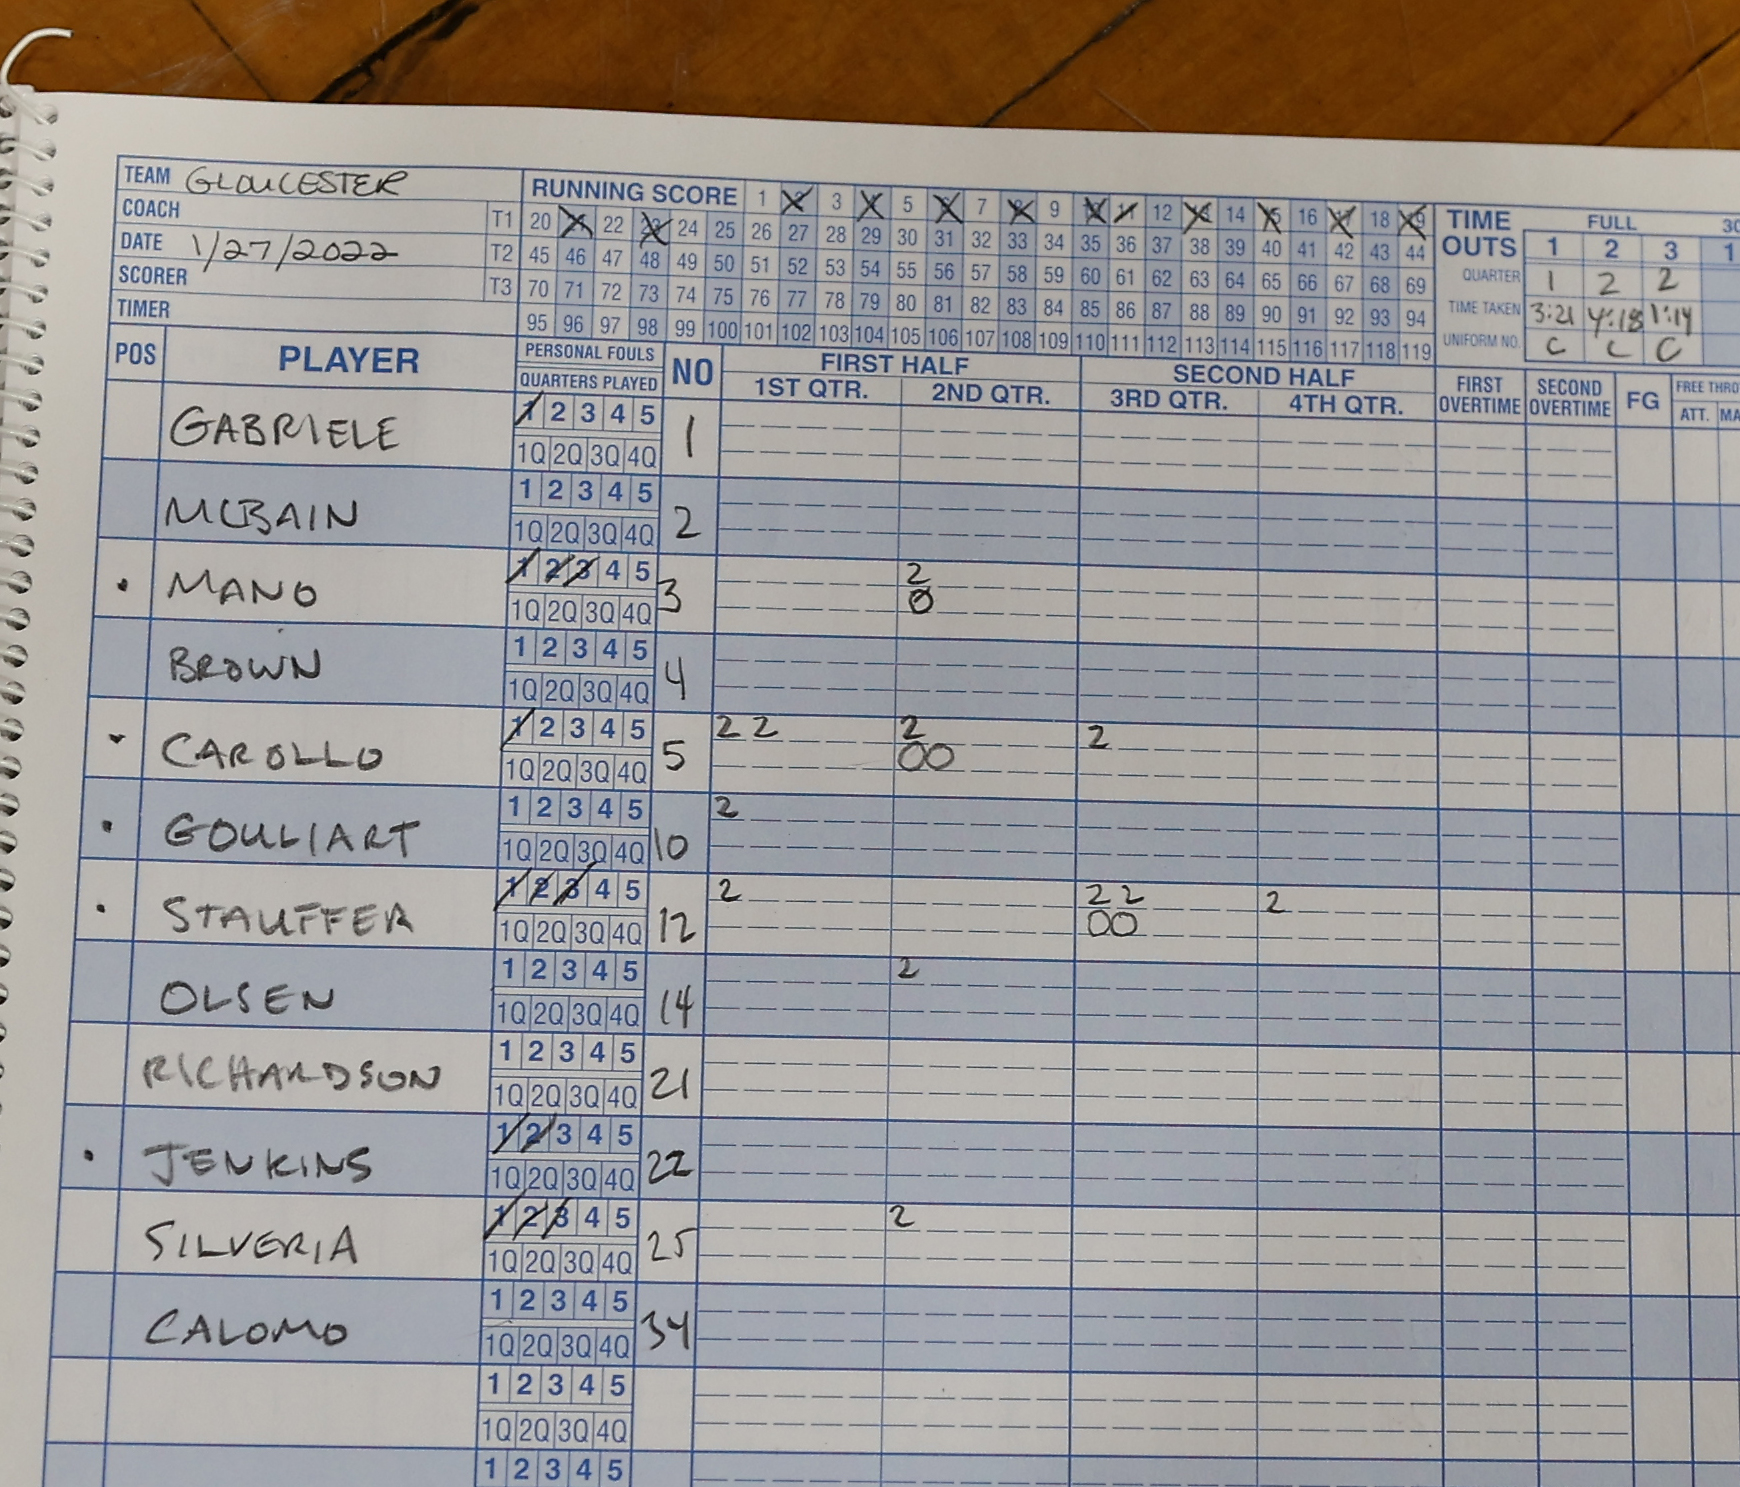 TEAM GLOUCESTER RUNNING SCORE 1 2 3 4 5 6 7 8 9 10 11 12 13 14 15 16 17 18 19 TIME OUTS FULL 30
COACH T1 20 21 22 23 24 25 26 27 28 29 30 31 32 33 34 35 36 37 38 39 40 41 42 43 44 1 2 3 1
DATE 1/27/2022 T2 45 46 47 48 49 50 51 52 53 54 55 56 57 58 59 60 61 62 63 64 65 66 67 68 69 QUARTER 1 2 2
SCORER T3 70 71 72 73 74 75 76 77 78 79 80 81 82 83 84 85 86 87 88 89 90 91 92 93 94 TIME TAKEN 3:21 4:18 1:14
TIMER 95 96 97 98 99 100 101 102 103 104 105 106 107 108 109 110 111 112 113 114 115 116 117 118 119 UNIFORM NO. C C C
POS PLAYER PERSONAL FOULS NO FIRST HALF SECOND HALF FIRST OVERTIME SECOND OVERTIME FG FREE THRO
QUARTERS PLAYED 1ST QTR. 2ND QTR. 3RD QTR. 4TH QTR. ATT. MA
GABRIELE 1 2 3 4 5 1
1Q 2Q 3Q 4Q
MCBAIN 1 2 3 4 5 2
1Q 2Q 3Q 4Q
MANO 1 2 3 4 5 3 2
1Q 2Q 3Q 4Q 0
BROWN 1 2 3 4 5 4
1Q 2Q 3Q 4Q
CAROLLO 1 2 3 4 5 5 2 2 2 2
1Q 2Q 3Q 4Q 00
GOULIART 1 2 3 4 5 10 2
1Q 2Q 3Q 4Q
STAUFFER 1 2 3 4 5 12 2 2 2 2
1Q 2Q 3Q 4Q 00
OLSEN 1 2 3 4 5 14 2
1Q 2Q 3Q 4Q
RICHARDSON 1 2 3 4 5 21
1Q 2Q 3Q 4Q
JENKINS 1 2 3 4 5 22
1Q 2Q 3Q 4Q
SILVERIA 1 2 3 4 5 25 2
1Q 2Q 3Q 4Q
CALOMO 1 2 3 4 5 34
1Q 2Q 3Q 4Q
1 2 3 4 5
1Q 2Q 3Q 4Q
1 2 3 4 5